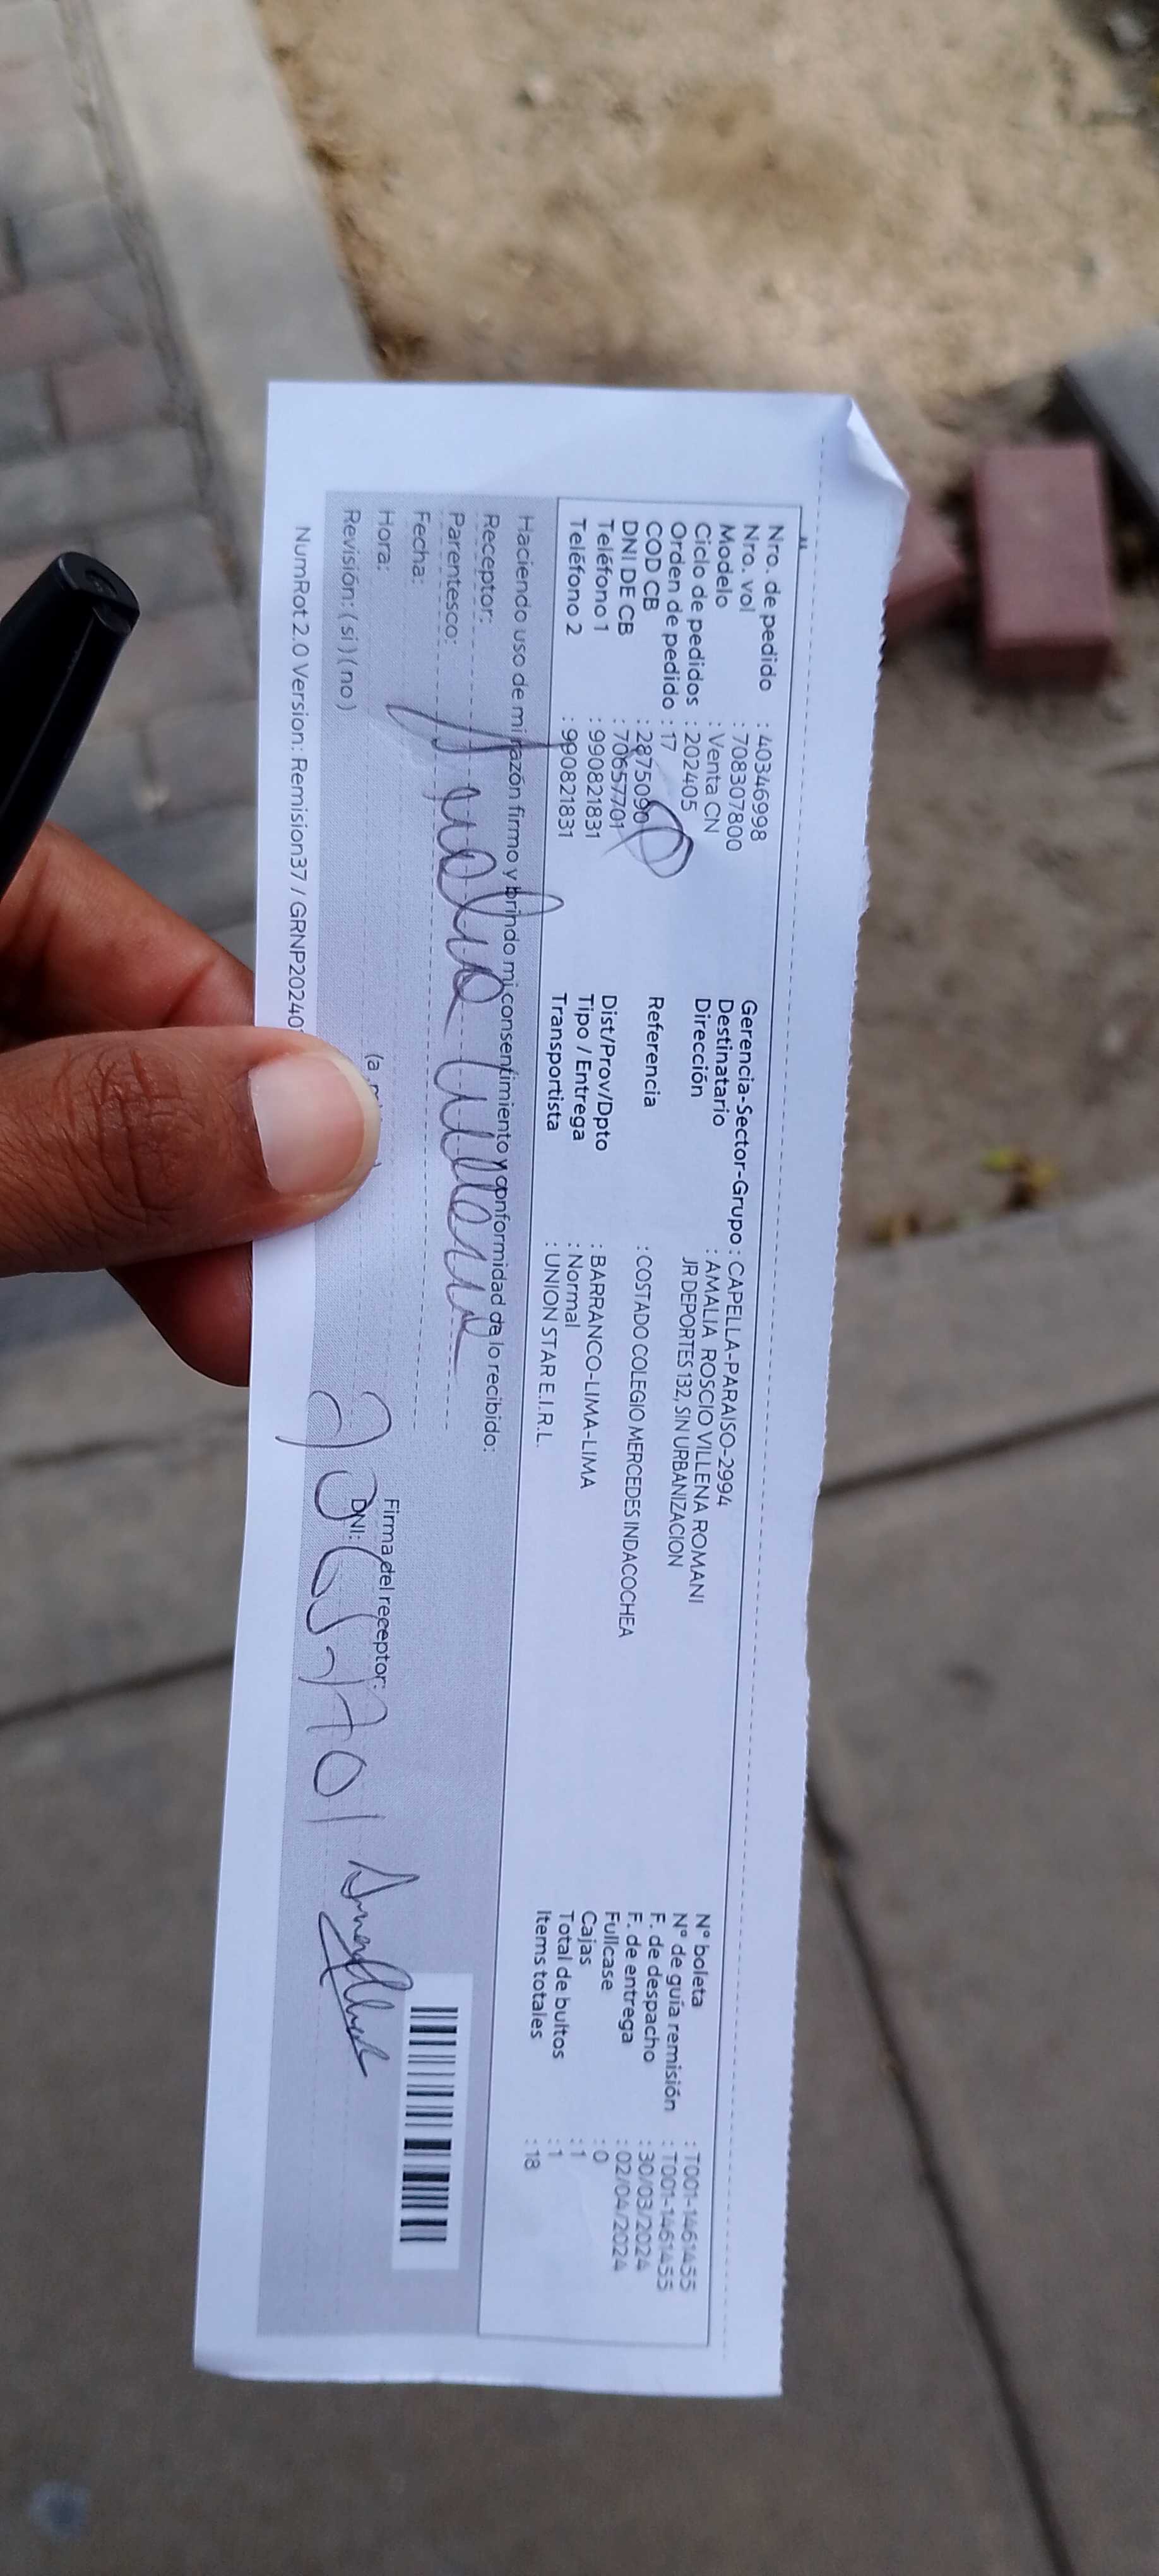 Nro. de pedido : 40346998
Nro. vol : 708307800
Modelo : Venta CN
Ciclo de pedidos : 202405
Orden de pedido : 17
COD CB : 2875090
DNI DE CB : 70657701
Teléfono 1 : 990821831
Teléfono 2 : 990821831
Gerencia-Sector-Grupo : CAPELLA-PARAISO-2994
Destinatario : AMALIA ROSCIO VILLENA ROMANI
Dirección JR DEPORTES 132, SIN URBANIZACION
Referencia : COSTADO COLEGIO MERCEDES INDACOCHEA
Dist/Prov/Dpto : BARRANCO-LIMA-LIMA
Tipo / Entrega : Normal
Transportista : UNION STAR E.I.R.L.
N° boleta : T001-1461455
N° de guía remisión : T001-1461455
F. de despacho : 30/03/2024
F. de entrega : 02/04/2024
Fullcase : 0
Cajas : 1
Total de bultos : 1
Items totales : 18
Haciendo uso de mi razón firmo y brindo mi consentimiento y conformidad de lo recibido:
Receptor:
Parentesco: Villena
Fecha:
Hora: (a
Revisión: ( si ) ( no )
Firma del receptor:
DNI:
NumRot 2.0 Version: Remision37 / GRNP20240